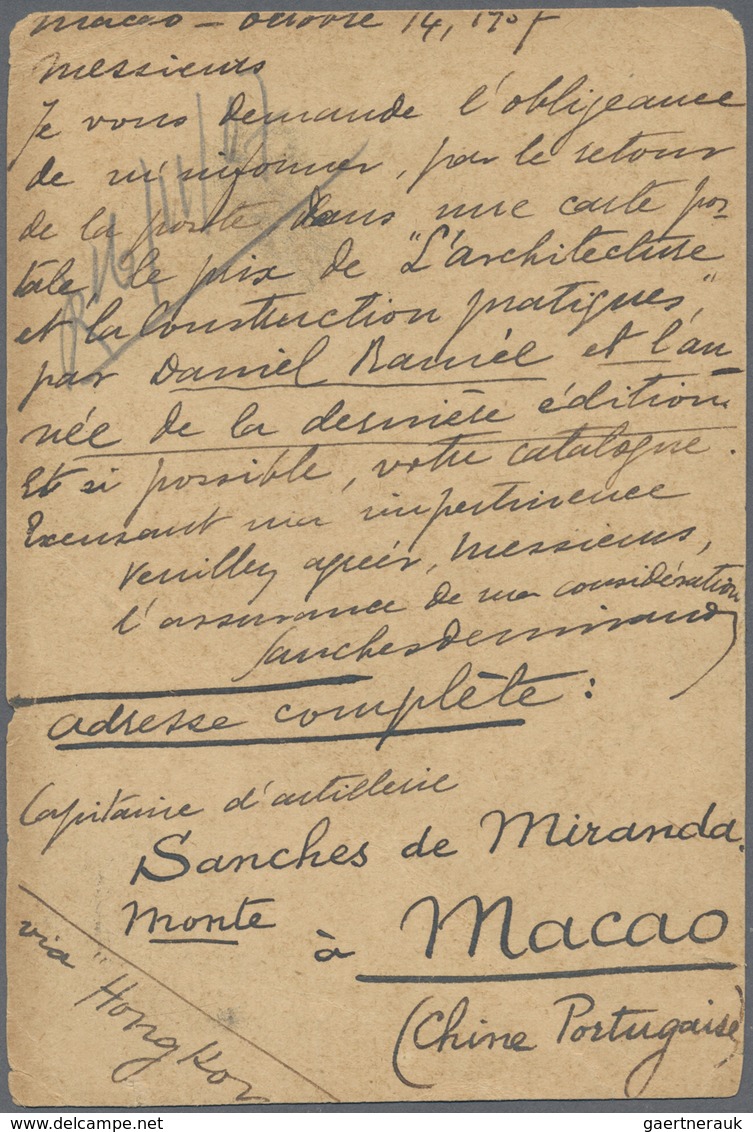 Macao – Octobre 14, 1907
Messieurs
Je vous demande l'obligeance
de m'informer, par le retour
de la poste dans une carte pos-
tale le prix de "L'architecture
et la Construction pratiques,"
par Daniel Ramée et l'an
née de la dernière édition.
Et si possible, votre catalogue.
Excusant mon impertinence
Veuillez agréer, Messieurs,
l'assurance de ma considération
Sanches de Miranda
adresse complète :
Capitaine d'artillerie
Sanches de Miranda.
Monte
à Macao
(Chine Portugaise)
via "Hong Kon
gaertnerauk